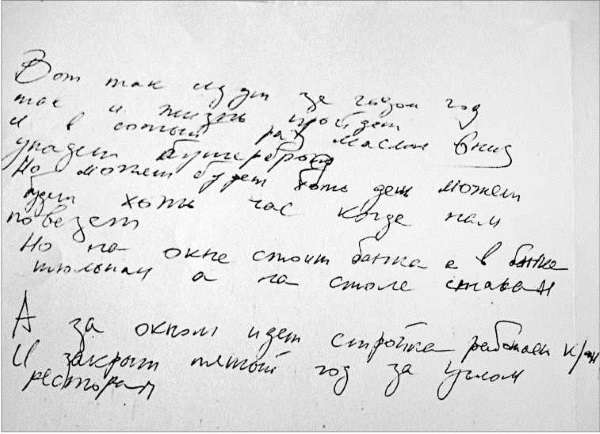 Вот так идут за годом год
так и жизнь пройдет
и в сотый раз маслом вниз
упадет бутерброд
Но может будет хоть день может
будет хоть час когда нам
повезет
Но на окне стоит банка а в банке
тюльпан а на столе стакан
А за окном идет стройка работает кран
И закрыт пятый год за углом
ресторан